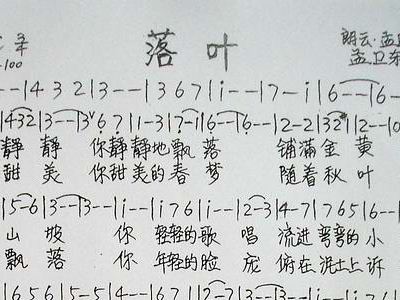 落叶
朗云·孟
孟卫东
-100
--|4 3 2|3--|3 6 7|i--|7-i|6--|6-
|432|3--|3 6 7|1-3|7-i|6--|6--|2-2|32|2-10
静静 你静静地飘落 铺满金黄
甜美 你甜美的春梦 随着秋叶
|5-6|3--|3--|i--|i76|i--|2-3|4-7|765|6--
山坡 你 轻轻的歌唱 流进弯弯的小
飘落 你 年轻的脸庞 俯在泥土上诉